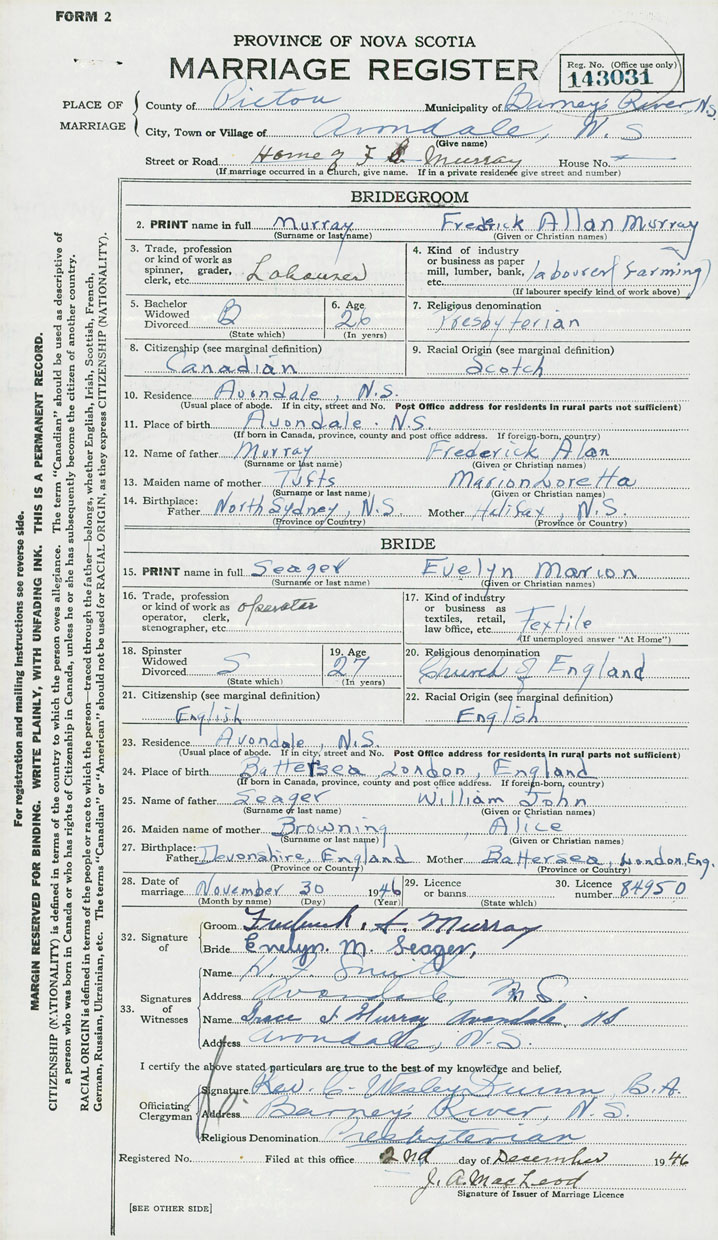 FORM 2
PROVINCE OF NOVA SCOTIA
MARRIAGE REGISTER
Reg. No. (Office use only)
143031
PLACE OF MARRIAGE
County of Pictou Municipality of Barney's River N.S.
City, Town or Village of Avondale, N.S
(Give name)
Street or Road Home of F Murray House No.
(If marriage occurred in a Church, give name. If in a private residence give street and number)
BRIDEGROOM
2. PRINT name in full Murray Frederick Allan Murray
(Surname or last name) (Given or Christian names)
3. Trade, profession or kind of work as spinner, grader, clerk, etc.
4. Kind of industry or business as paper mill, lumber, bank, etc. labourer (farming)
(If labourer specify kind of work above)
5. Bachelor Widowed Divorced B
(State which)
6. Age 26
(In years)
7. Religious denomination
Presbyterian
8. Citizenship (see marginal definition)
Canadian
9. Racial Origin (see marginal definition)
Scotch
10. Residence Avondale, N.S.
(Usual place of abode. If in city, street and No. Post Office address for residents in rural parts not sufficient)
11. Place of birth Avondale. N.S.
(If born in Canada, province, county and post office address. If foreign-born, country)
12. Name of father Murray Frederick Alan
(Surname or last name) (Given or Christian names)
13. Maiden name of mother Tufts Marion Loretta
(Surname or last name) (Given or Christian names)
14. Birthplace: Father North Sydney, N.S Mother Halifax, N.S.
(Province or Country) (Province or Country)
BRIDE
15. PRINT name in full Seager Evelyn Marion
(Surname or last name) (Given or Christian names)
16. Trade, profession or kind of work as operator, clerk, stenographer, etc. operator
17. Kind of industry or business as textiles, retail, law office, etc. Textile
(If unemployed answer "At Home")
18. Spinster Widowed Divorced S
(State which)
19. Age 27
(In years)
20. Religious denomination
Church of England
21. Citizenship (see marginal definition)
English
22. Racial Origin (see marginal definition)
English
23. Residence Avondale, N.S.
(Usual place of abode. If in city, street and No. Post Office address for residents in rural parts not sufficient)
24. Place of birth Battersea London, England
(If born in Canada, province, county and post office address. If foreign-born, country)
25. Name of father Seager William John
(Surname or last name) (Given or Christian names)
26. Maiden name of mother Browning, Alice
(Surname or last name) (Given or Christian names)
27. Birthplace: Father Devonshire, England Mother Battersea, London, Eng.
(Province or Country) (Province or Country)
28. Date of marriage November 30 1946
(Month by name) (Day) (Year)
29. Licence or banns
(State which)
30. Licence number 84950
32. Signature of
Groom Frederick A. Murray
Bride Evelyn. M. Seager,
33. Signatures of Witnesses
Name H. F. Smith
Address Avondale, N.S.
Name Grace J. Murray Avondale. NS
Address Avondale, N.S.
I certify the above stated particulars are true to the best of my knowledge and belief,
Officiating Clergyman
Signature Rev. C. Wesley Dunn B.A.
Address Barney's River, N.S.
Religious Denomination Presbyterian
Registered No. Filed at this office 2nd day of December 1946
J. A. MacLeod
Signature of Issuer of Marriage Licence
[SEE OTHER SIDE]
For registration and mailing instructions see reverse side.
MARGIN RESERVED FOR BINDING. WRITE PLAINLY, WITH UNFADING INK. THIS IS A PERMANENT RECORD.
CITIZENSHIP (NATIONALITY) is defined in terms of the country to which the person owes allegiance. The term "Canadian" should be used as descriptive of
a person who was born in Canada or who has rights of Citizenship in Canada, unless he or she has subsequently become the citizen of another country.
RACIAL ORIGIN is defined in terms of the people or race to which the person—traced through the father—belongs, whether English, Irish, Scottish, French,
German, Russian, Ukrainian, etc. The terms "Canadian" or "American" should not be used for RACIAL ORIGIN, as they express CITIZENSHIP (NATIONALITY).